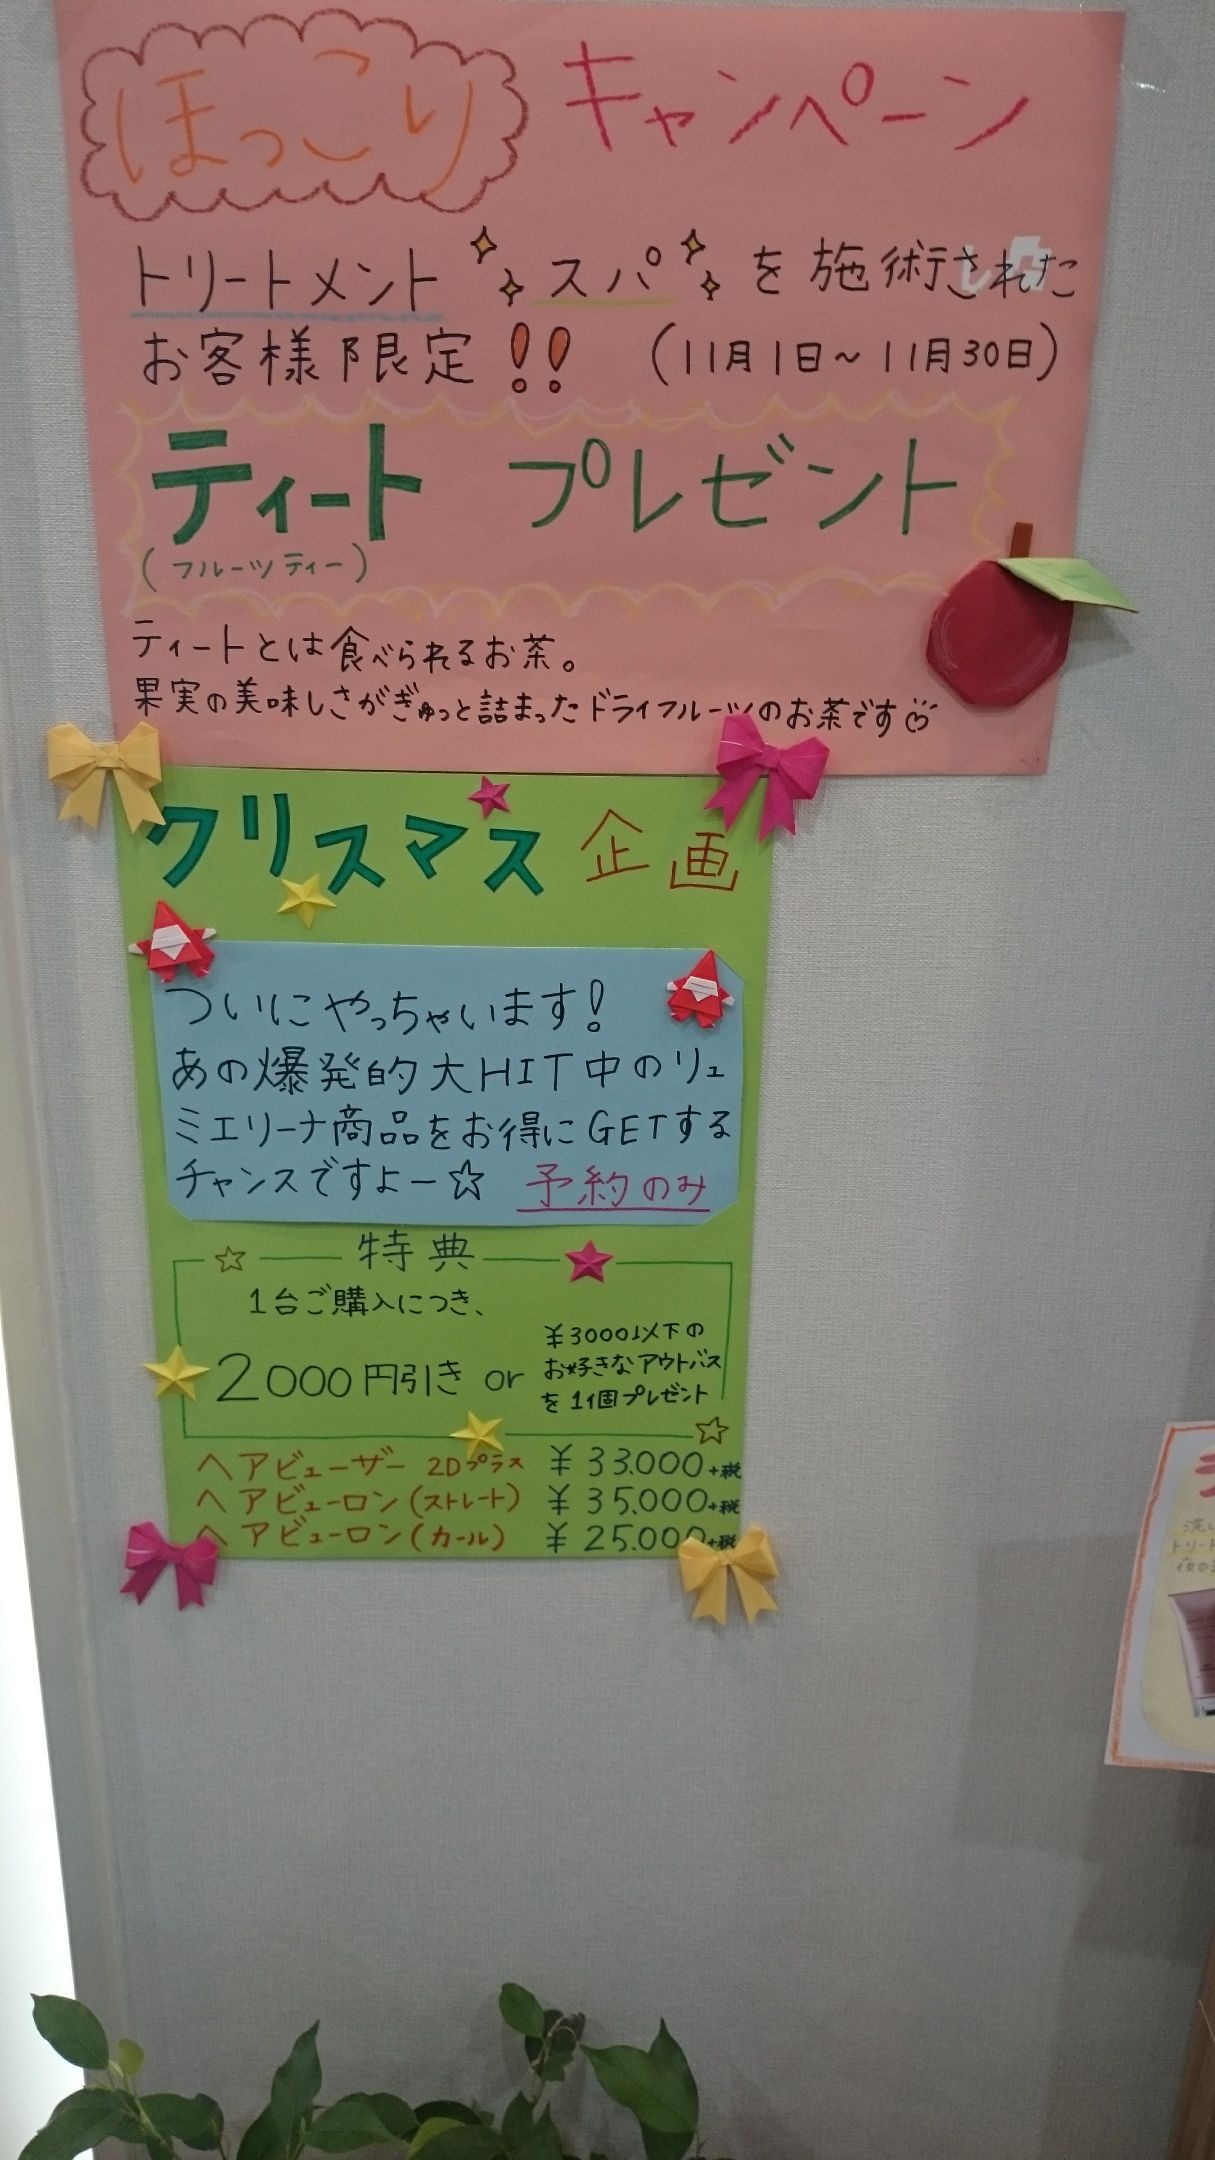 ほっこり キャンペーン
トリートメント スパ を施術された
お客様限定!! (11月1日～11月30日)
ティート プレゼント
(フルーツティー)
ティートとは食べられるお茶。
果実の美味しさがぎゅっと詰まったドライフルーツのお茶です
クリスマス 企画
ついにやっちゃいます!
あの爆発的大HIT中のリュ
ミエリーナ商品をお得にGETする
チャンスですよー☆ 予約のみ
特典
1台ご購入につき、
2000円引き or
¥3000以下の
お好きなアウトバス
を1個プレゼント
ヘアビューザー 2Dプラス ¥33.000+税
ヘアビューロン(ストレート) ¥35.000+税
ヘアビューロン(カール) ¥25.000+税